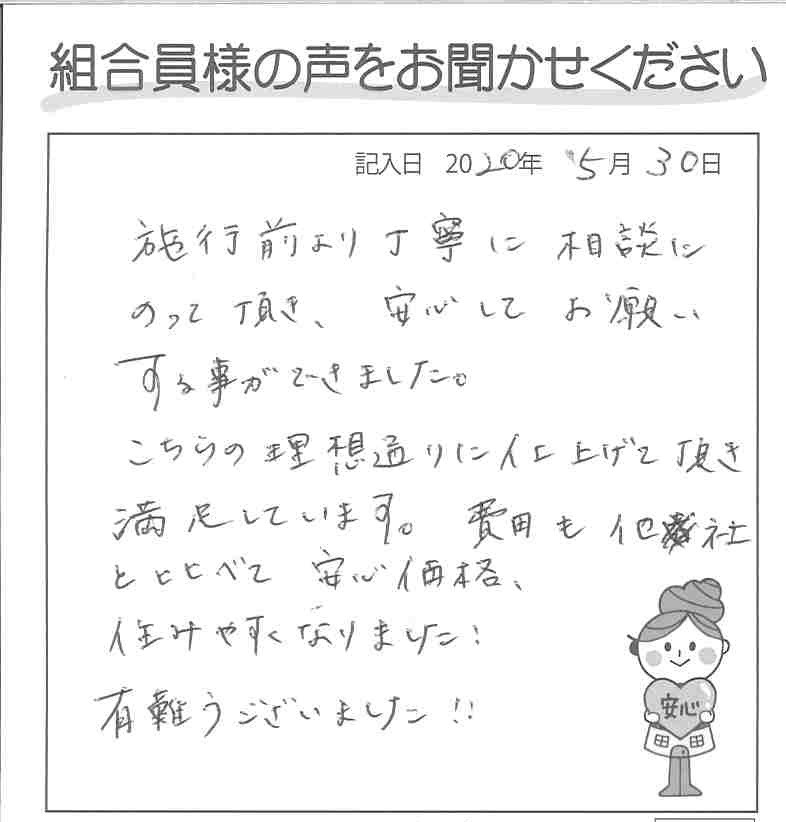 組合員様の声をお聞かせください
記入日 2020年 5月 30日
施行前より丁寧に相談に
のって頂き、安心してお願い
する事ができました。
こちらの理想通りに仕上げて頂き
満足しています。費用も他社
と比べて安心価格、
住みやすくなりました!
有難うございました!!
安心